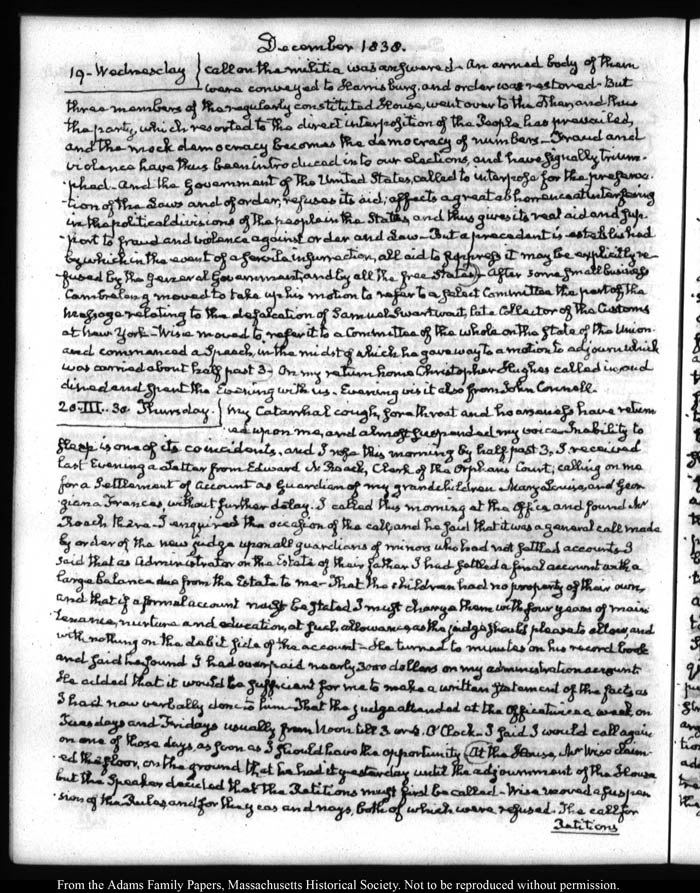 December 1838.
19-Wednesday } call on the militia was answered - An armed body of them
were conveyed to Harrisburg, and order was restored - But
three members of the regularly constituted House, went over to the other, and thus
the party, which resorted to the direct interposition of the People has prevailed,
and the mock democracy becomes the democracy of numbers - Fraud and
violence have thus been introduced into our elections, and have signally trium-
phed - And the Government of the United States, called to interpose for the preserva-
tion of the Laws and of order, refuses its aid; affects a great abhorrence at interfering
in the political divisions of the people in the States, and thus gives its real aid and sup-
port to fraud and violence against order and Law - But a precedent is established
by which in the event of a servile insurrection, all aid to suppress it may be explicitly re-
fused by the General Government, and by all the free States - After some small business
Cambreleng moved to take up his motion to refer to a select Committee the part of the
message relating to the defalcation of Samuel Swartwout, late Collector of the Customs
at New York - Wise moved to refer it to a Committee of the whole on the State of the Union
and commenced a Speech, in the midst of which he gave way to a motion to adjourn which
was carried about half past 3 - On my return home Christopher Hughes called in, and
dined and spent the Evening with us. Evening visit also from John Connell.
20-III..30 Thursday. } My Catarrhal cough, sore throat and hoarseness have return-
ed upon me, and almost suspended my voice. Inability to
sleep is one of its coincidents, and I rose this morning by half past 3. I received
last Evening a Letter from Edward N. Roach, Clerk of the Orphans Court, calling on me
for a Settlement of Account as Guardian of my grandchildren Mary Louisa, and Geor-
giana Frances, without further delay. I called this morning at the Office and found Mr
Roach there - I enquired the occasion of the call, and he said that it was a general call made
by order of the new judge upon all guardians of minors who had not settled accounts. I
said that as Administrator on the Estate of their father I had settled a final account with a
large balance due from the Estate to me - That the children had no property of their own,
and that if a formal account must be stated I must charge them with four years of main-
tenance, nurture and education, at such allowance as the judge should please to allow, and
with nothing on the debit side of the account - He turned to minutes on his record book
and said he found I had overpaid nearly 3000 dollars on my administration account.
He added that it would be sufficient for me to make a written statement of the facts as
I had now verbally done to him - That the judge attended at the Office twice a week on
Tuesdays and Fridays usually from Noon till 3 or 4. O'Clock - I said I would call again
on one of those days, as soon as I should have the opportunity. At the House, Mr Wise claim-
ed the floor, on the ground that he had it yesterday until the adjournment of the House
but the Speaker decided that the Petitions must first be called - Wise moved a suspen-
sion of the Rules, and for the yeas and nays, both of which were refused. The call for
Petitions
From the Adams Family Papers, Massachusetts Historical Society. Not to be reproduced without permission.